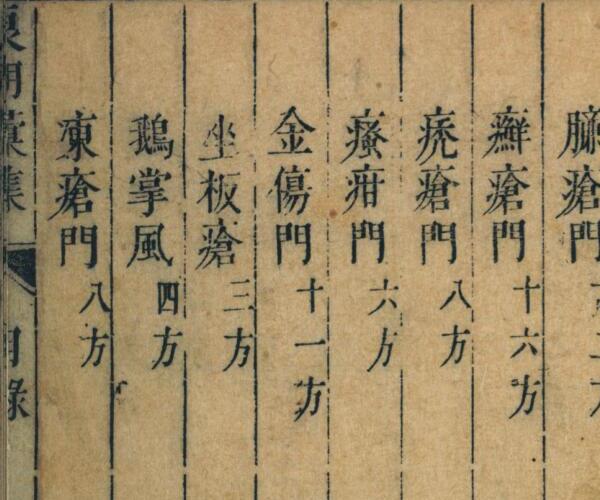 臁瘡門
癬瘡門 十六方
禿瘡門 八方
瘙疳門 六方
金傷門 十一方
坐板瘡 三方
鵝掌風 四方
凍瘡門 八方
彙集 目錄